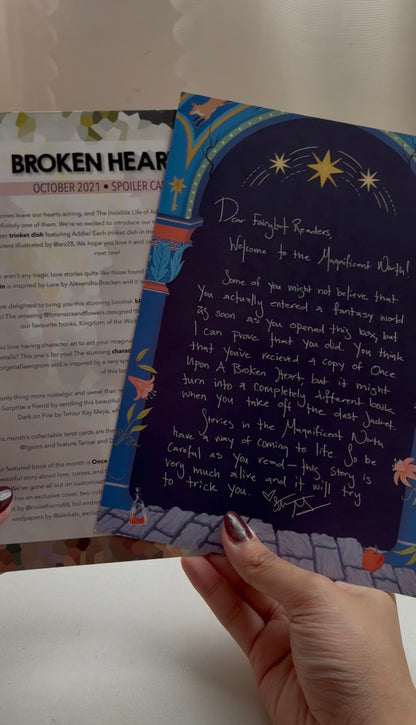 BROKEN HEAR
OCTOBER 2021 • SPOILER CA
ones leave our hearts aching, and The Invisible Life of A
finitely one of them. We're so excited to introduce our
er trinket dish featuring Addie! Each trinket dish in th
ckers illustrated by @arz28. We hope you love it and ca
next one!
aren't any tragic love stories quite like those found
in is inspired by Lore by Alexandra Bracken and it i
delighted to bring you this stunning bookish bl
! The amazing @forensicsandflowers designed th
our favourite books, Kingdom of the Wick
ou love having character art to aid your imagin
details? This one's for you! The stunning charac
organa0anagrom and is inspired by a very sp
of this bo
only thing more nostalgic and sweet than
Surprise a friend by sending this beautiful
Dark on Fire by Tehlor Kay Mejia, wh
is month's collectable tarot cards are the
@gions and feature Tarisai and D
ur featured book of the month is Once
beautiful story about love, curses, and
We've gone all out on customisa
has an exclusive cover, two-co
t by @rosiethorns88, foil embo
endpapers by @aleikats, exclus
Dear Fairyloot Readers,
Welcome to the Magnificent North!
Some of you might not believe that
you actually entered a fantasy world
as soon as you opened this box, but
I can prove that you did. You think
that you've recieved a copy of Once
Upon A Broken Heart, but it might
turn into a completely different book,
when you take off the dust jacket.
Stories in the Magnificent North
have a way of coming to life. So be
careful as you read — this story is
very much alive and it will try
to trick you.